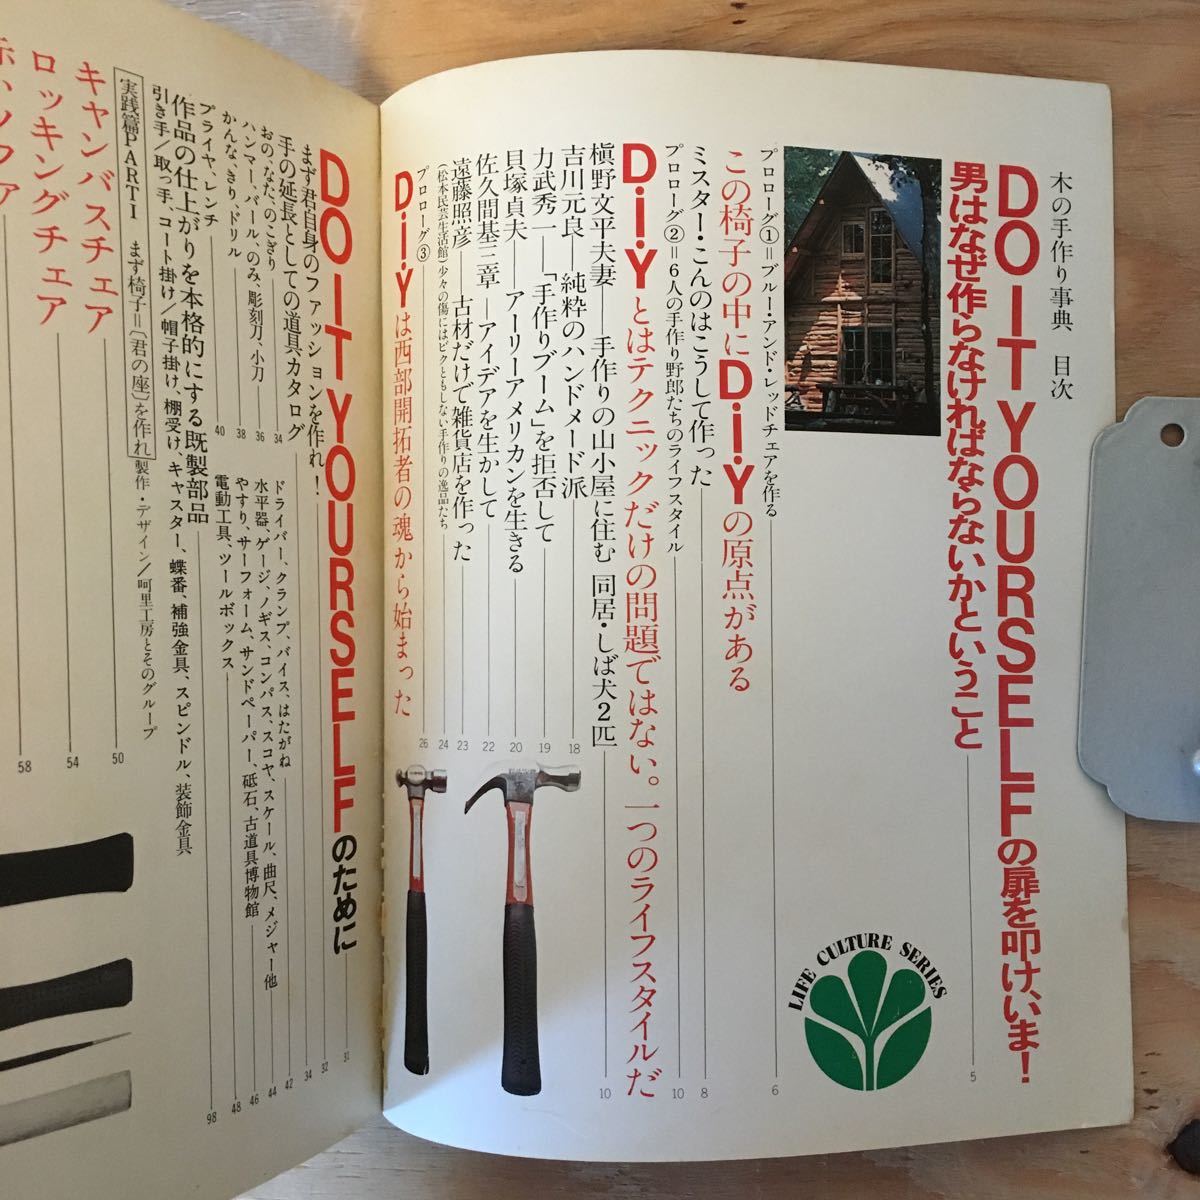 木の手作り事典 目次
DO IT YOURSELFの扉を叩け、いま!
男はなぜ作らなければならないかということ
5
プロローグ①＝ブルー・アンド・レッドチェアを作る
6
この椅子の中にD・i・Yの原点がある
ミスター・こんのはこうして作った
8
プロローグ②＝6人の手作り野郎たちのライフスタイル
10
D・i・Yとはテクニックだけの問題ではない。一つのライフスタイルだ
槇野文平夫妻──手作りの山小屋に住む 同居・しば犬2匹
10
吉川元良──純粋のハンドメード派
18
力武秀一──「手作りブーム」を拒否して
19
貝塚貞夫──アーリーアメリカンを生きる
20
佐久間基三章──アイデアを生かして
22
遠藤照彦──古材だけで雑貨店を作った
23
(松本民芸生活館)少々の傷にはビクともしない手作りの逸品たち
24
プロローグ③
26
D・i・Yは西部開拓者の魂から始まった
LIFE CULTURE SERIES
DO IT YOURSELFのために
31
まず君自身のファッションを作れ!
32
手の延長としての道具カタログ
34
おの、なた、のこぎり
34
ハンマー、バール、のみ、彫刻刀、小刀
36
かんな、きり、ドリル
38
プライヤ、レンチ
40
ドライバー、クランプ、バイス、はたがね
42
水平器、ゲージ、ノギス、コンパス、スコヤ、スケール、曲尺、メジャー他
44
やすり、サーフォーム、サンドペーパー、砥石、古道具博物館
46
電動工具、ツールボックス
48
作品の仕上がりを本格的にする既製部品
98
引き手/取っ手、コート掛け/帽子掛け、棚受け、キャスター、蝶番、補強金具、スピンドル、装飾金具
実践篇PARTI まず椅子＝〔君の座〕を作れ
製作・デザイン/呵里工房とそのグループ
キャンバスチェア
50
ロッキングチェア
54
58